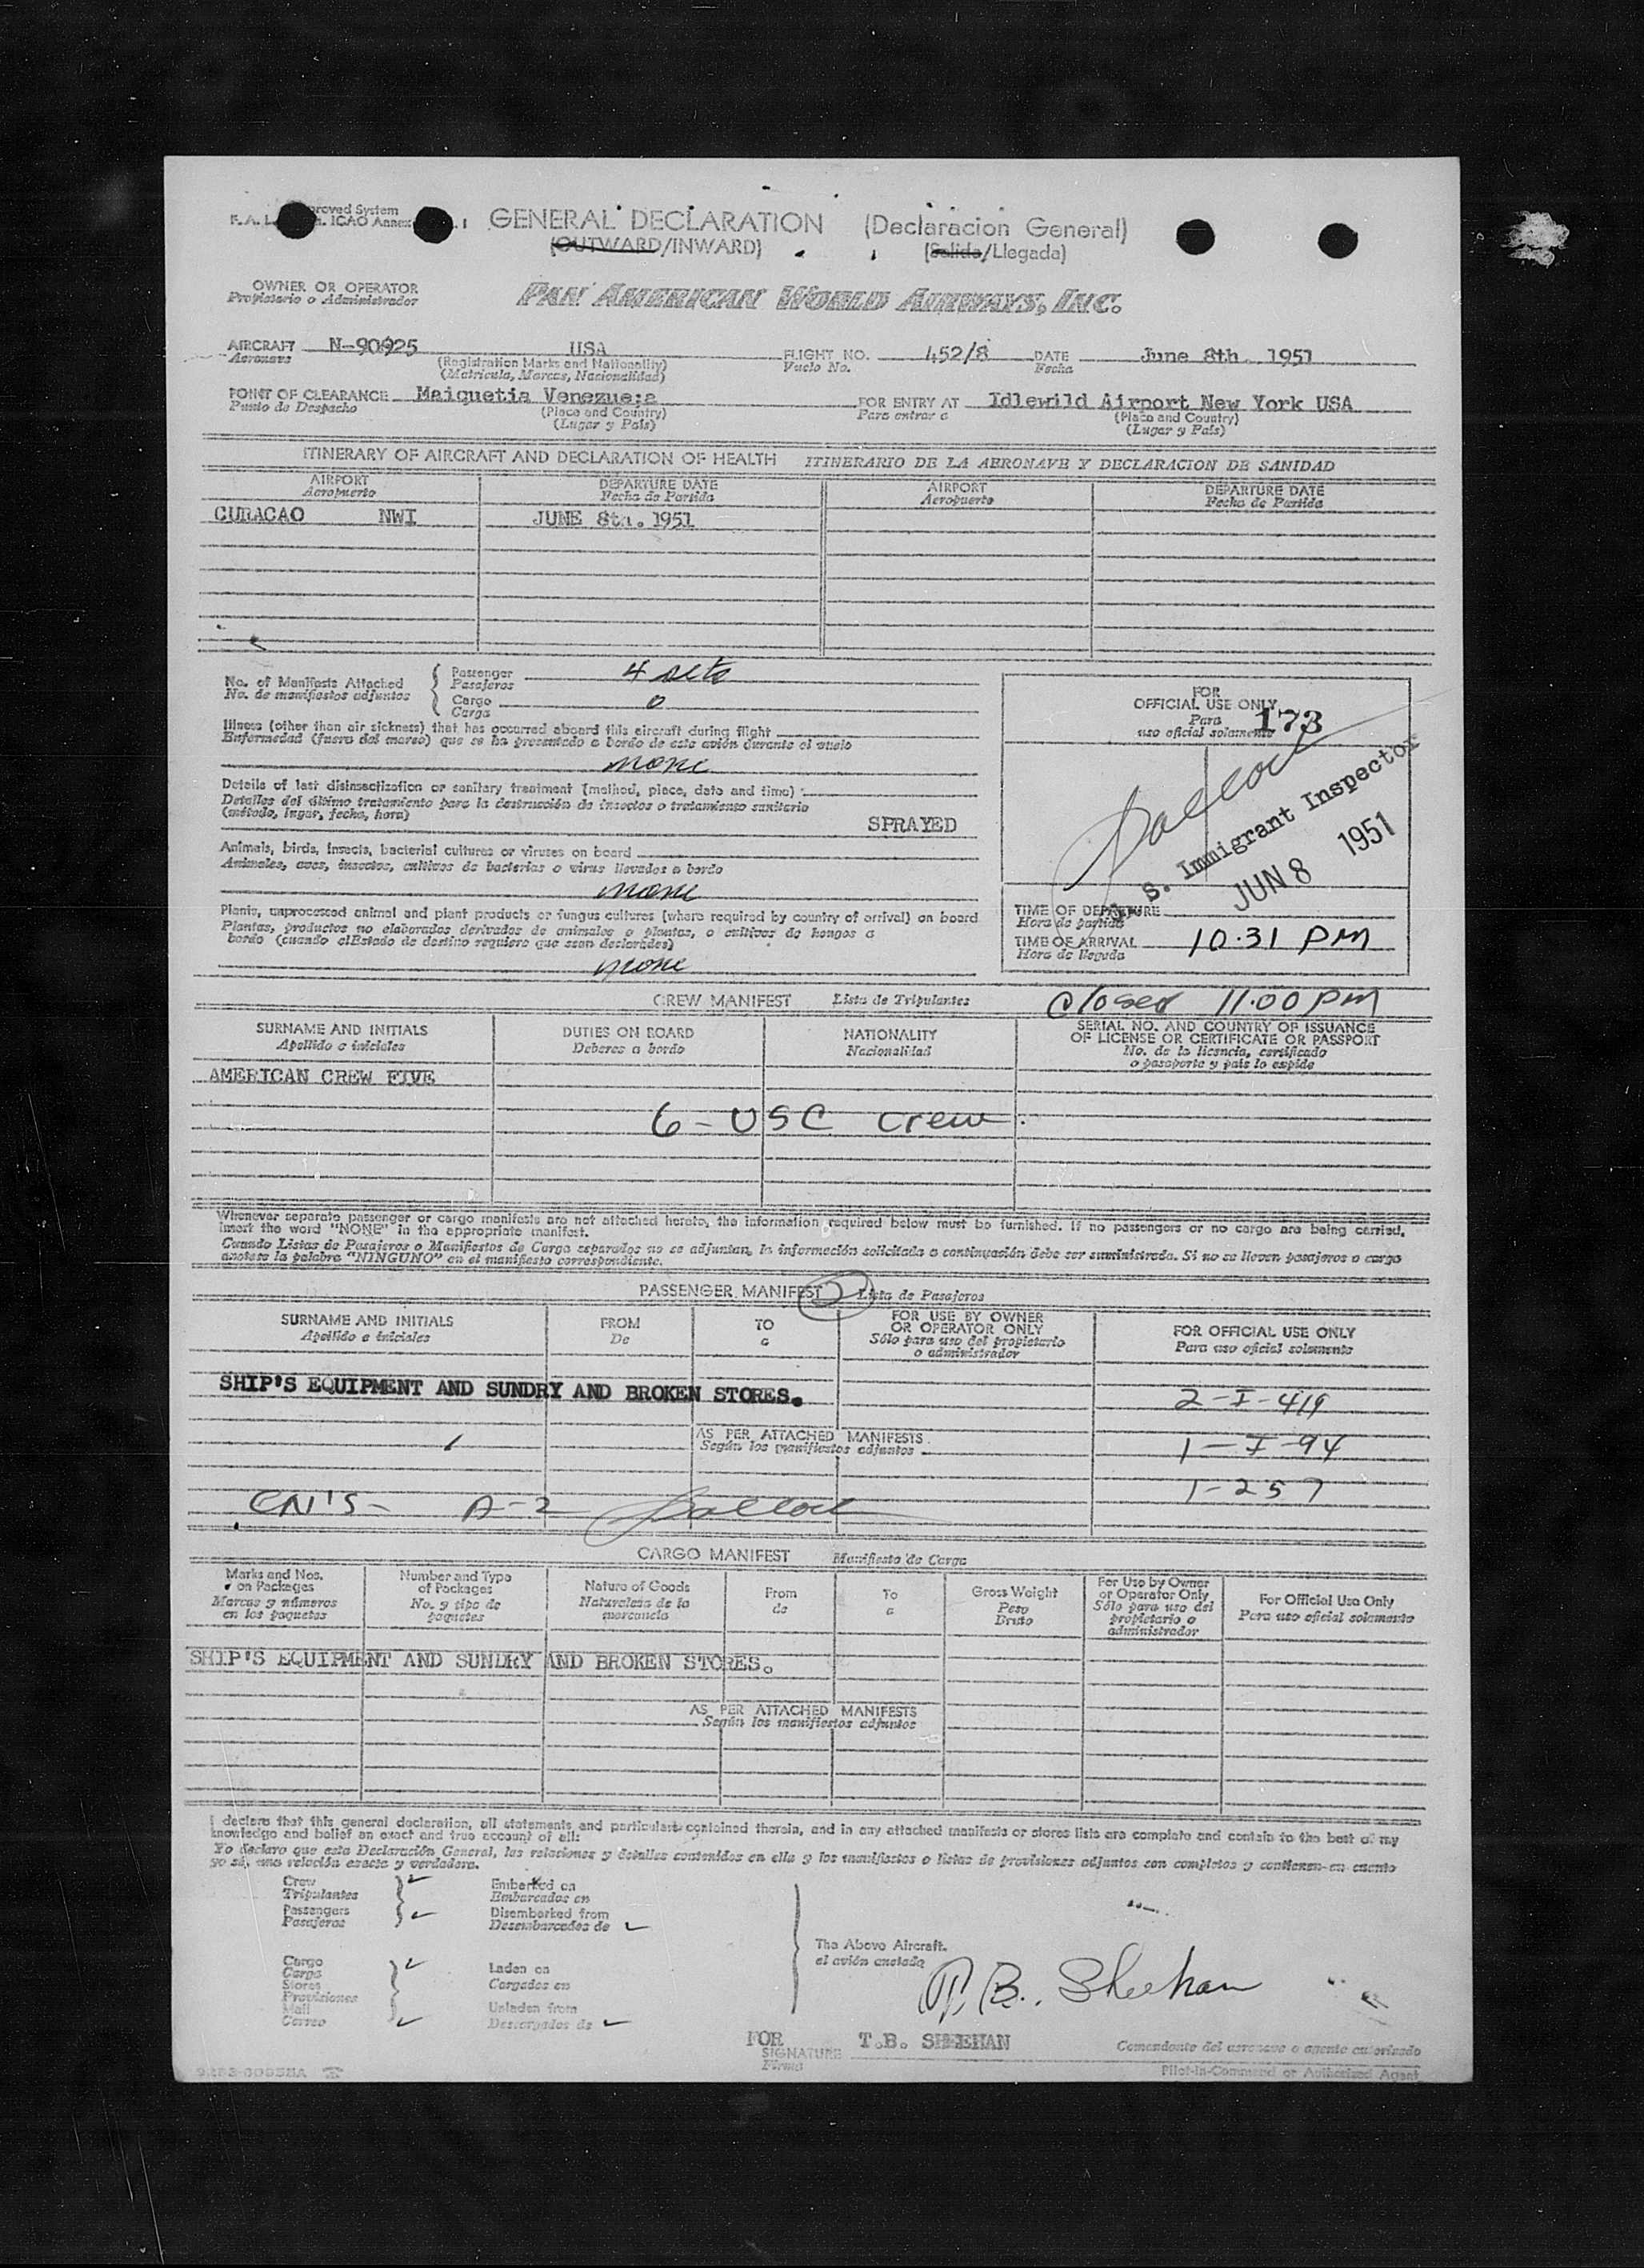 GENERAL DECLARATION (Declaracion General)
(OUTWARD/INWARD) (Salida/Llegada)
OWNER OR OPERATOR
Propietario o Administrador
PAN AMERICAN WORLD AIRWAYS, INC.
AIRCRAFT N-90925 USA FLIGHT NO. 452/8 DATE June 8th. 1951
Aeronave (Registration Marks and Nationality) Vuelo No. Fecha
(Matricula, Marcas, Nacionalidad)
POINT OF CLEARANCE Maiquetia Venezue;a FOR ENTRY AT Idlewild Airport New York USA
Punto de Despacho (Place and Country) Para entrar a (Place and Country)
(Lugar y País) (Lugar y País)
ITINERARY OF AIRCRAFT AND DECLARATION OF HEALTH ITINERARIO DE LA AERONAVE Y DECLARACION DE SANIDAD
AIRPORT DEPARTURE DATE AIRPORT DEPARTURE DATE
Aeropuerto Fecha de Partida Aeropuerto Fecha de Partida
CURACAO NWI JUNE 8th. 1951
No. of Manifests Attached
No. de manifiestos adjuntos
Passenger 4 sets
Pasajeros
Cargo 0
Carga
FOR
OFFICIAL USE ONLY
Para
uso oficial solamente
173
Illness (other than air sickness) that has occurred aboard this aircraft during flight
Enfermedad (fuera del mareo) que se ha presentado a bordo de este avión durante el vuelo
none
Details of last disinsectization or sanitary treatment (method, place, date and time)
Detalles del último tratamiento para la destrucción de insectos o tratamiento sanitario
(método, lugar, fecha, hora)
SPRAYED
Animals, birds, insects, bacterial cultures or viruses on board
Animales, aves, insectos, cultivos de bacterias o virus llevados a bordo
none
Plants, unprocessed animal and plant products or fungus cultures (where required by country of arrival) on board
Plantas, productos no elaborados derivados de animales o plantas, o cultivos de hongos a
bordo (cuando elEstado de destino requiera que sean declarados)
none
S. Immigrant Inspector
JUN 8 1951
TIME OF DEPARTURE
Hora de partida
TIME OF ARRIVAL 10.31 PM
Hora de llegada
CREW MANIFEST Lista de Tripulantes closed 11.00 PM
SURNAME AND INITIALS DUTIES ON BOARD NATIONALITY SERIAL NO. AND COUNTRY OF ISSUANCE
Apellido e iniciales Deberes a bordo Nacionalidad OF LICENSE OR CERTIFICATE OR PASSPORT
No. de la licencia, certificado
o pasaporte y país lo expide
AMERICAN CREW FIVE
6 - USC Crew
Whenever separate passenger or cargo manifests are not attached hereto, the information required below must be furnished. If no passengers or no cargo are being carried,
insert the word "NONE" in the appropriate manifest.
Cuando Listas de Pasajeros o Manifiestos de Carga separados no se adjuntan, la información solicitada a continuación debe ser suministrada. Si no se lleven pasajeros o cargo
anotese la palabra "NINGUNO" en el manifiesto correspondiente.
PASSENGER MANIFEST Lista de Pasajeros
SURNAME AND INITIALS FROM TO FOR USE BY OWNER FOR OFFICIAL USE ONLY
Apellido e iniciales De a OR OPERATOR ONLY Para uso oficial solamente
Sólo para uso del propietario
o administrador
SHIP'S EQUIPMENT AND SUNDRY AND BROKEN STORES.
2-I-419
AS PER ATTACHED MANIFESTS
Según los manifiestos adjuntos
1-I-94
1-257
CN'S - A-2
CARGO MANIFEST Manifiesto de Carga
Marks and Nos. Number and Type Nature of Goods From To Gross Weight For Use by Owner For Official Use Only
on Packages of Packages Naturaleza de la de a Peso or Operator Only Para uso oficial solamente
Marcas y números No. y tipo de mercancía Bruto Sólo para uso del
en los paquetes paquetes propietario o
administrador
SHIP'S EQUIPMENT AND SUNDRY AND BROKEN STORES.
AS PER ATTACHED MANIFESTS
Según los manifiestos adjuntos
I declare that this general declaration, all statements and particulars contained therein, and in any attached manifests or stores lists are complete and contain to the best of my
knowledge and belief an exact and true account of all:
Yo declaro que esta Declaración General, las relaciones y detalles contenidos en ella y los manifiestos o listas de provisiones adjuntos son completos y contienen en cuanto
yo sé, una relación exacta y verdadera.
Crew Embarked on
Tripulantes Embarcados en
Passengers Disembarked from
Pasajeros Desembarcados de
The Above Aircraft.
el avión anotado
Cargo Laden on
Carga Cargados en
Stores
Provisiones
Mail Unladen from
Correo Descargados de
T. B. Sheehan
FOR T.B. SHEEHAN
SIGNATURE
Firma
Comandante del aeronave o agente autorizado
Pilot-in-Command or Authorized Agent